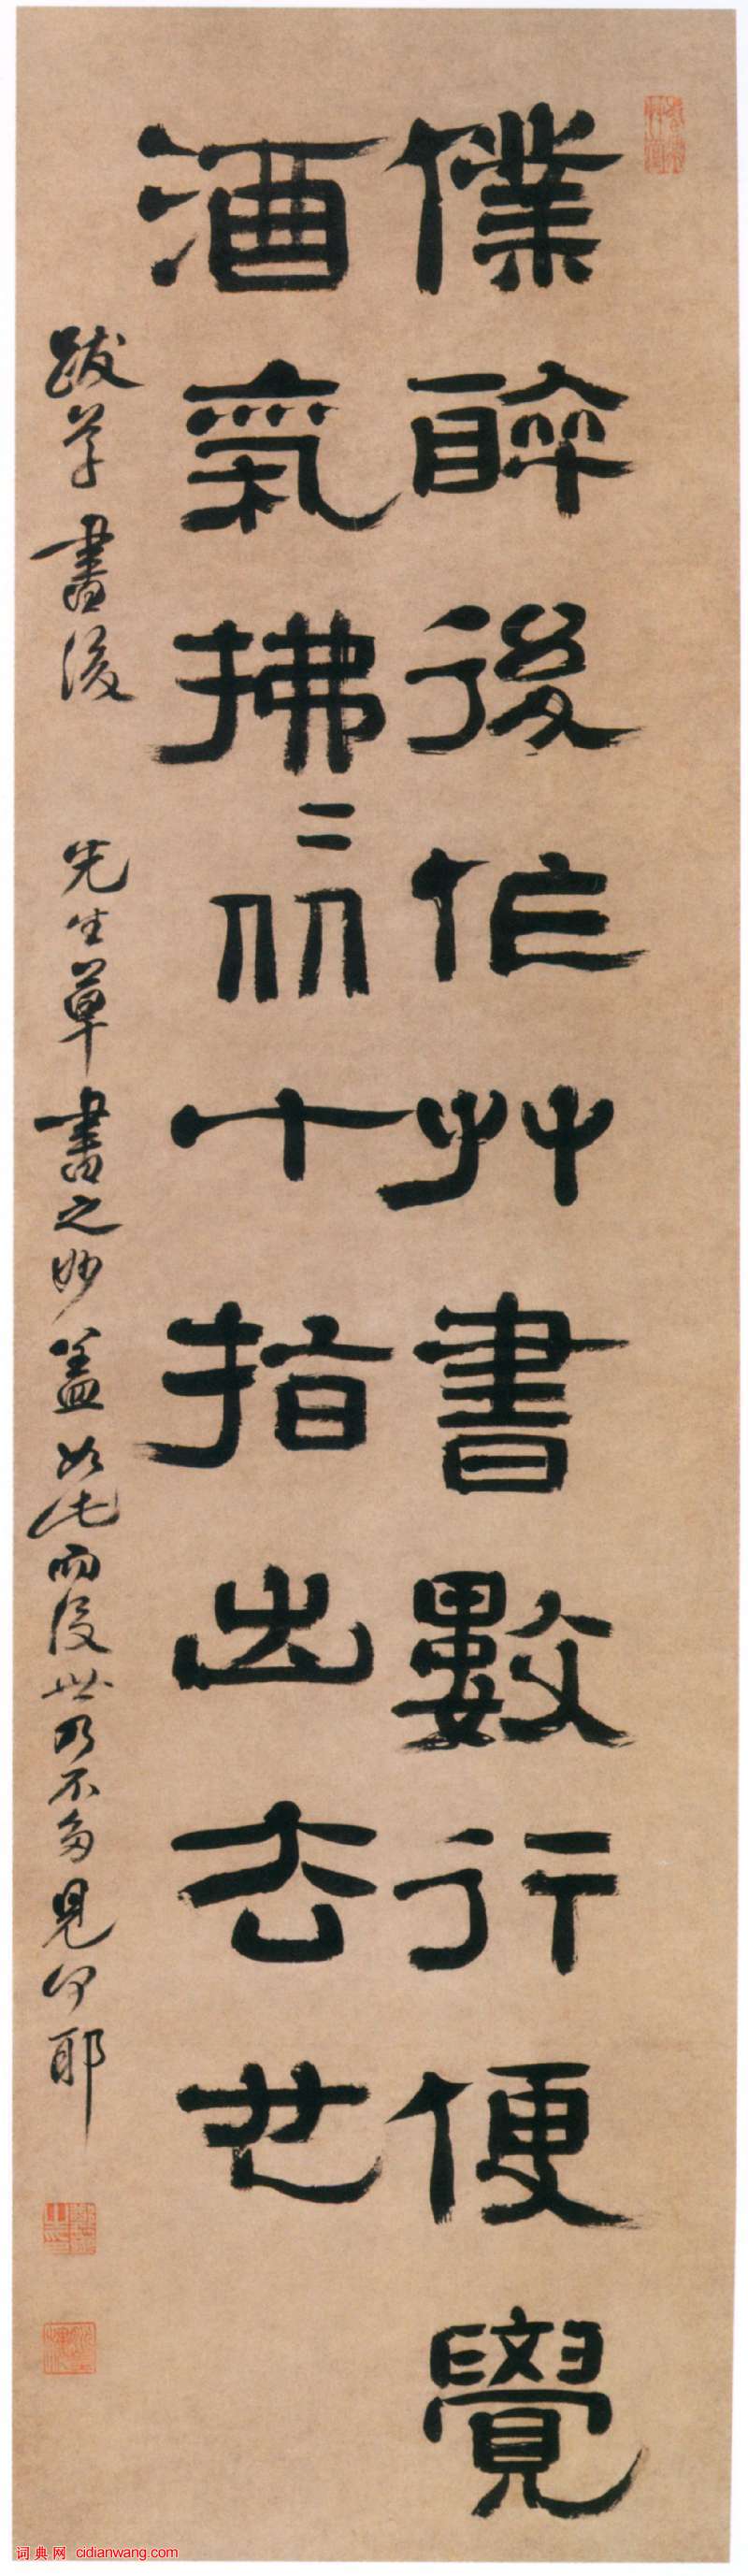 僕醉後作艸書數行便覺
酒氣拂二从十指出去世
跋草書後　先生草書之妙蓋如此而後世乃不多見何耶
词典网 cidianwang.com